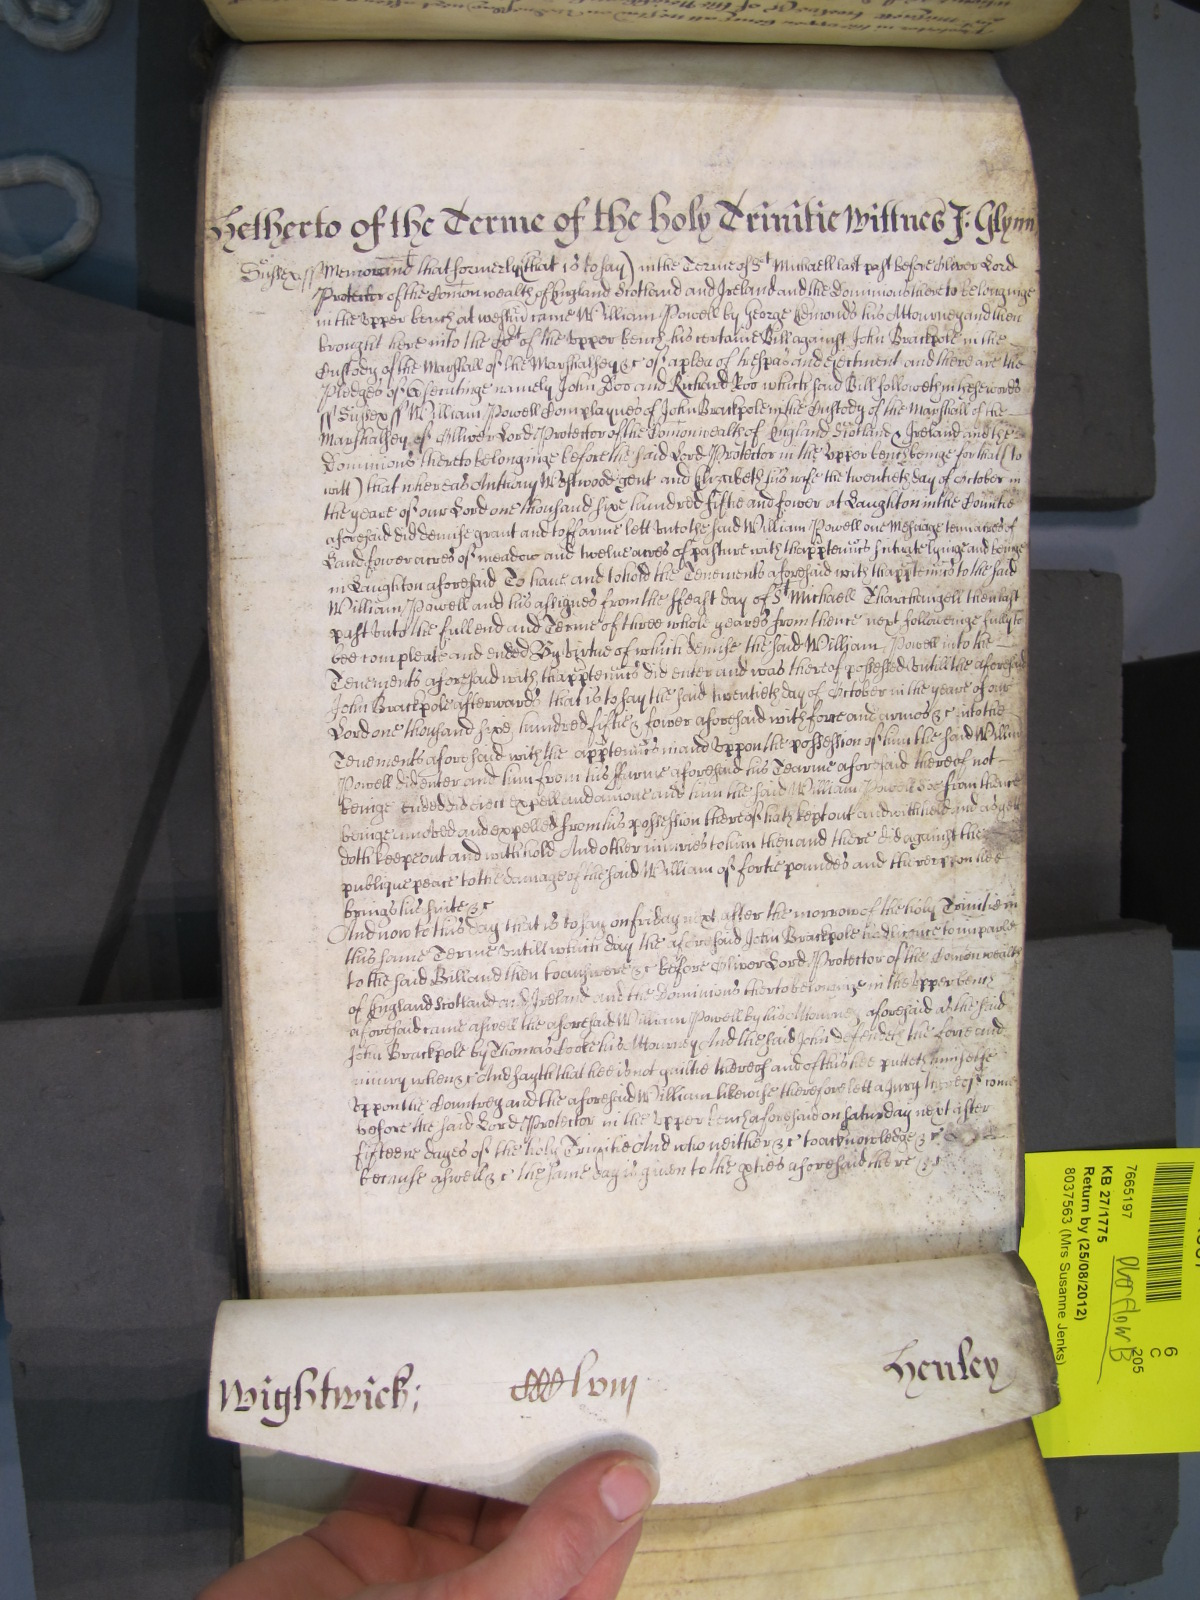 Hetherto of the Terme of the holy Trinitie Wittnes J: Glynn
Sussex ss Memorand that formerly (that is to say) in the Terme of St Michaell last past before Oliver Lord
Protector of the Comonwealth of England Scotland and Ireland and the Dominions thereto belonginge
in the Upper bench at Westm came William Powell by George Edmonds his Attourney and then
brought here into the Cort of the Upper bench his certaine Bill against John Brackpole in the
Custody of the Marshall of the Marshalsey &c of a plea of trespas and eiectment and there are the
Pledges of Prosecutinge namely John Doo and Richard Roo which said Bill followeth in these words
ss Sussex ss William Powell Complaynes of John Brackpole in the Custody of the Marshall of the
Marshalsey of Olliver Lord Protector of the Comonwealth of England Scotland & Ireland and the
Dominions thereto belonginge before the said Lord Protector in the Upper bench beinge for that (to
witt) that whereas Anthony Westwood gent and Elizabeth his wife the twentieth day of October in
the yeare of our Lord one thousand sixe hundred fiftie and fower at Laughton in the Countie
aforesaid did demise grant and to ffarme lett unto the said William Powell one Messuage tenn acres of
Land fower acres of meadow and twelve acres of pasture with thapptenncs scituate lyinge and beinge
in Laughton aforesaid To have and to hold the Tenements aforesaid with thapptenncs to the said
William Powell and his assignes from the ffeast day of St Michaell Tharchangell then last
past unto the full end and Terme of three whole yeares from thence next followinge fully to
bee compleate and ended By virtue of which demise the said William Powell into the
Tenements aforesaid with thapptenncs did enter and was thereof possessed untill the aforesaid
John Brackpole afterwards that is to say the said twentieth day of October in the yeare of our
Lord one thousand sixe hundred fiftie & fower aforesaid with force and armes &c into the
Tenements aforesaid with the apptenncs in and uppon the possession of him the said William
Powell did enter and him from his ffarme aforesaid his Tearme aforesaid thereof not
beinge ended did eiect expell and amove and him the said William Powell soe from thence
beinge amoved and expelled from his possession thereof hath kept out and withheld and as yett
doth keepe out and withhold And other iniuries to him then and there did against the
publique peace to the damage of the said William of fortie poundes and thereuppon hee
brings his suite &c
And now to this day that is to say on friday next after the morrow of the holy Trinitie in
this same Terme untill which day the aforesaid John Brackpole had licence to imparle
to the said Bill and then to answere &c before Oliver Lord Protector of the Comonwealth
of England Scotland and Ireland and the Dominions thereto belonginge in the Upper bench
aforesaid came aswell the aforesaid William Powell by his Attourney aforesaid as the said
John Brackpole by Thomas Cooke his Attourney And the said John defendeth the force and
iniury when &c And sayth that hee is not guiltie thereof and of this hee putteth himselfe
uppon the Countrey and the aforesaid William likewise therefore lett a Jury thereof come
before the said Lord Protector in the Upper bench aforesaid on Saturday next after
fifteene dayes of the holy Trinitie And who neither &c to acknowledge &c
because aswell &c the same day is given to the pties aforesaid there &c
Wightwick;
lviij
Henley
7665197
KB 27/1775
Return by (25/08/2012)
8037563 (Mrs Susanne Jenks)
Overflow B
205
6
C